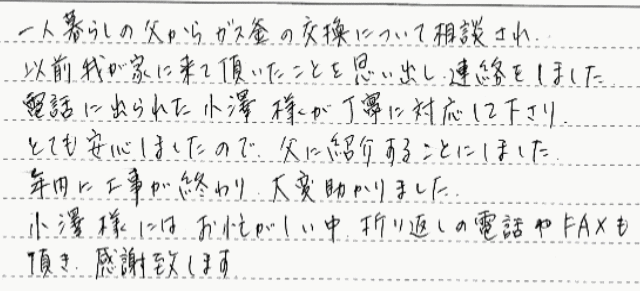 一人暮らしの父からガス釜の交換について相談され、
以前我が家に来て頂いたことを思い出し、連絡をしました。
電話に出られた小澤様が丁寧に対応して下さり、
とても安心しましたので、父に紹介することにしました。
年内に工事が終わり、大変助かりました。
小澤様にはお忙がしい中、折り返しの電話やFAXも
頂き、感謝致します